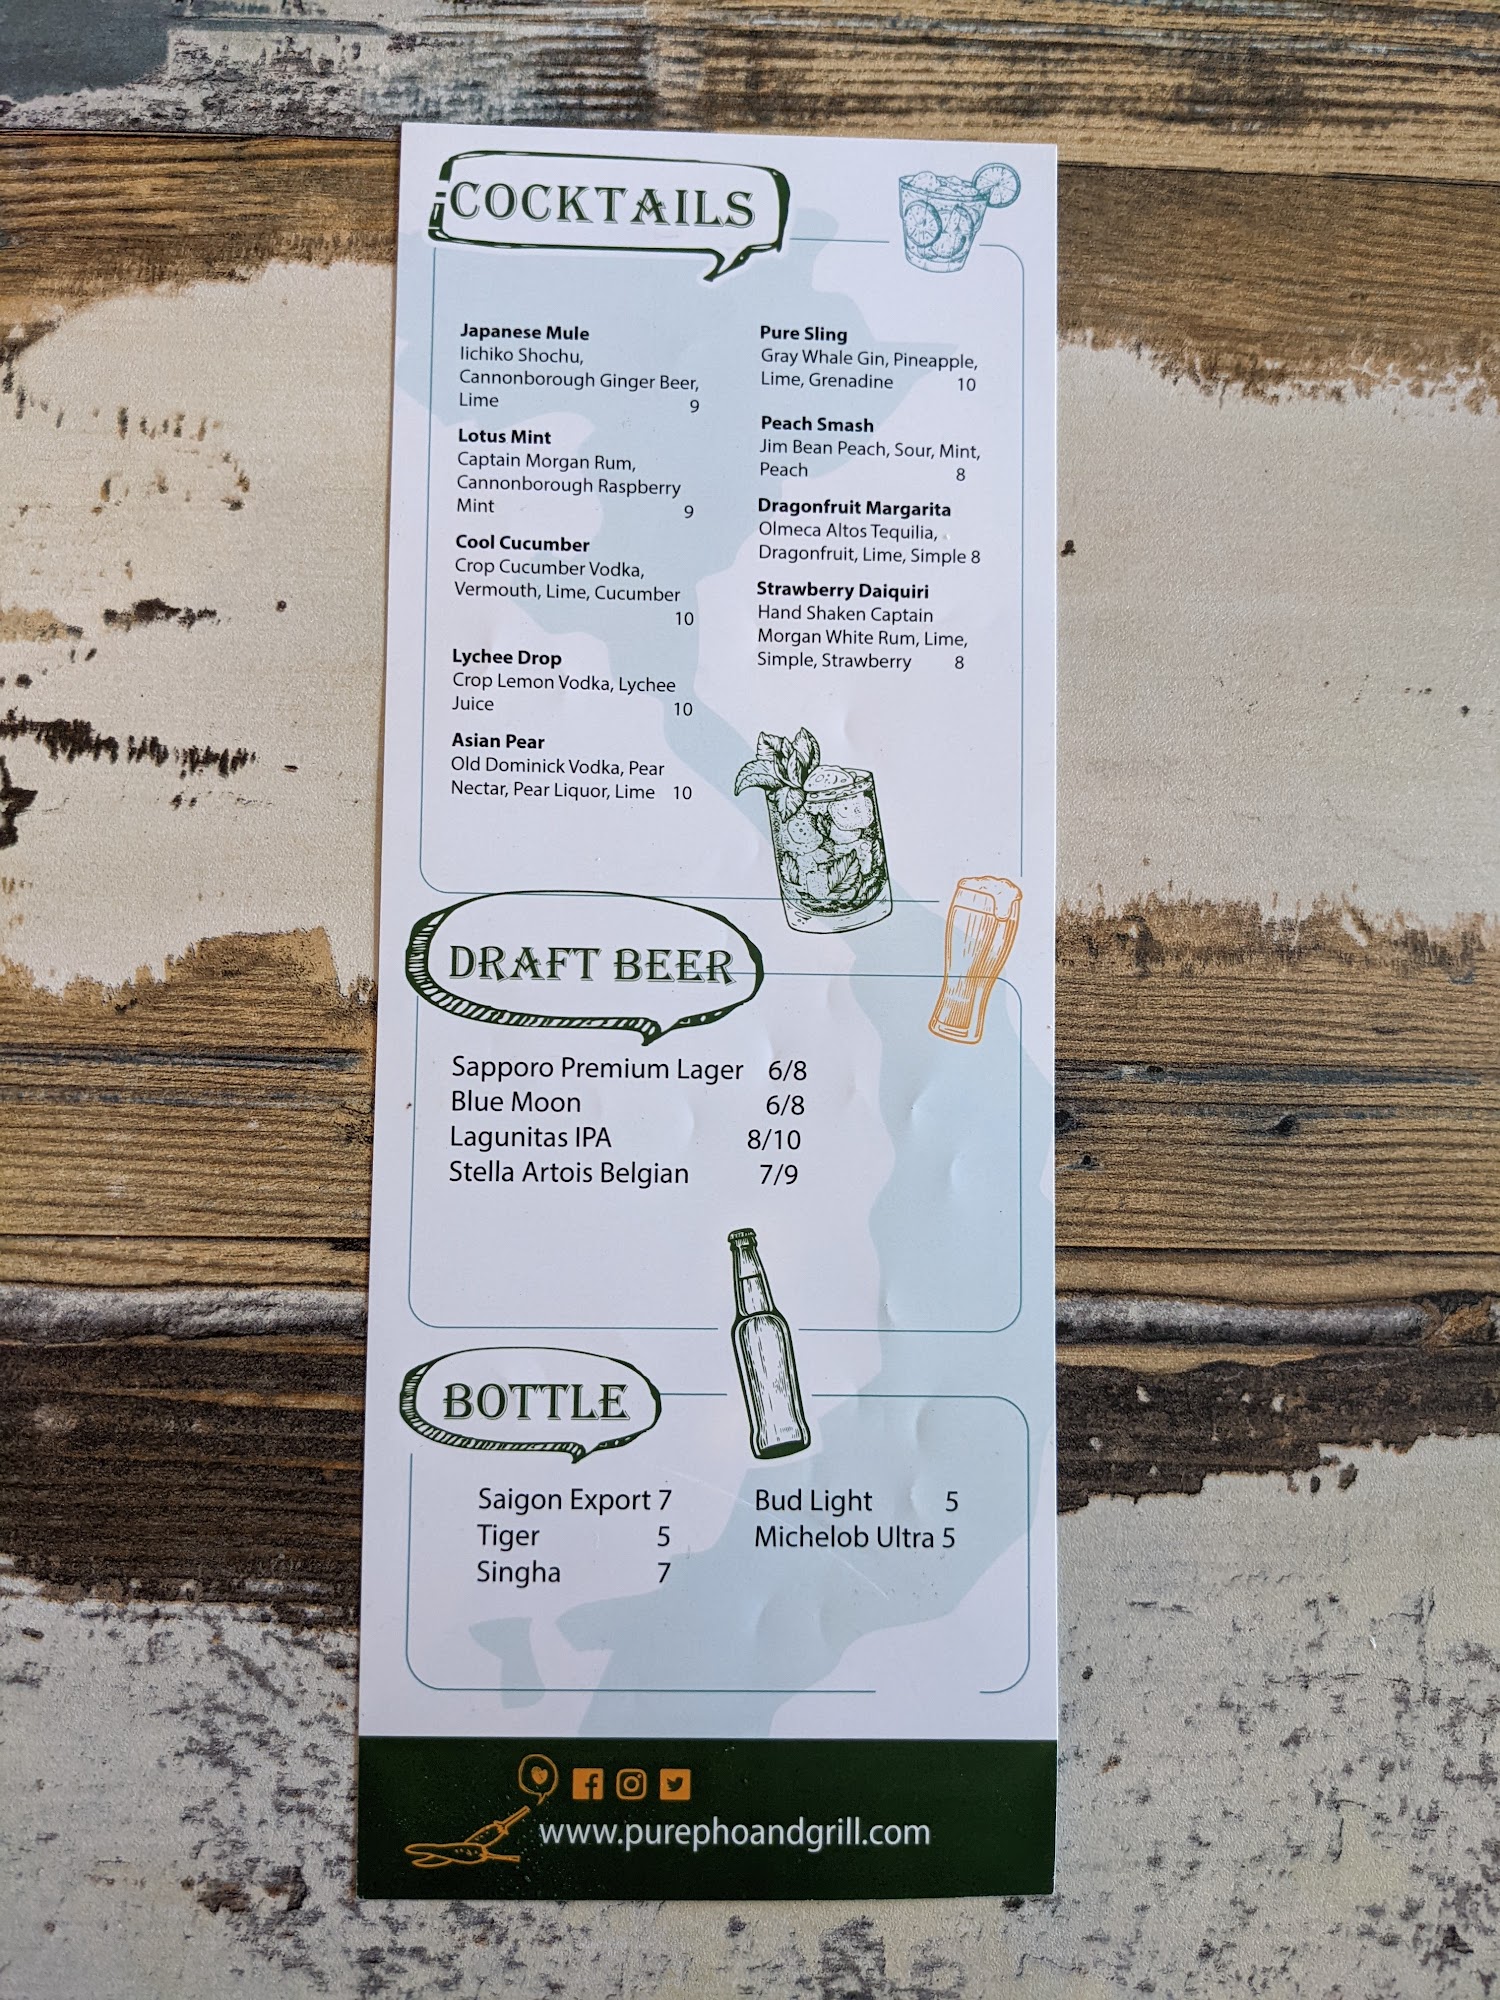 COCKTAILS
Japanese Mule
Iichiko Shochu,
Cannonborough Ginger Beer,
Lime 9
Lotus Mint
Captain Morgan Rum,
Cannonborough Raspberry
Mint 9
Cool Cucumber
Crop Cucumber Vodka,
Vermouth, Lime, Cucumber
10
Lychee Drop
Crop Lemon Vodka, Lychee
Juice 10
Asian Pear
Old Dominick Vodka, Pear
Nectar, Pear Liquor, Lime 10
Pure Sling
Gray Whale Gin, Pineapple,
Lime, Grenadine 10
Peach Smash
Jim Bean Peach, Sour, Mint,
Peach 8
Dragonfruit Margarita
Olmeca Altos Tequilia,
Dragonfruit, Lime, Simple 8
Strawberry Daiquiri
Hand Shaken Captain
Morgan White Rum, Lime,
Simple, Strawberry 8
DRAFT BEER
Sapporo Premium Lager 6/8
Blue Moon 6/8
Lagunitas IPA 8/10
Stella Artois Belgian 7/9
BOTTLE
Saigon Export 7
Tiger 5
Singha 7
Bud Light 5
Michelob Ultra 5
www.purephoandgrill.com